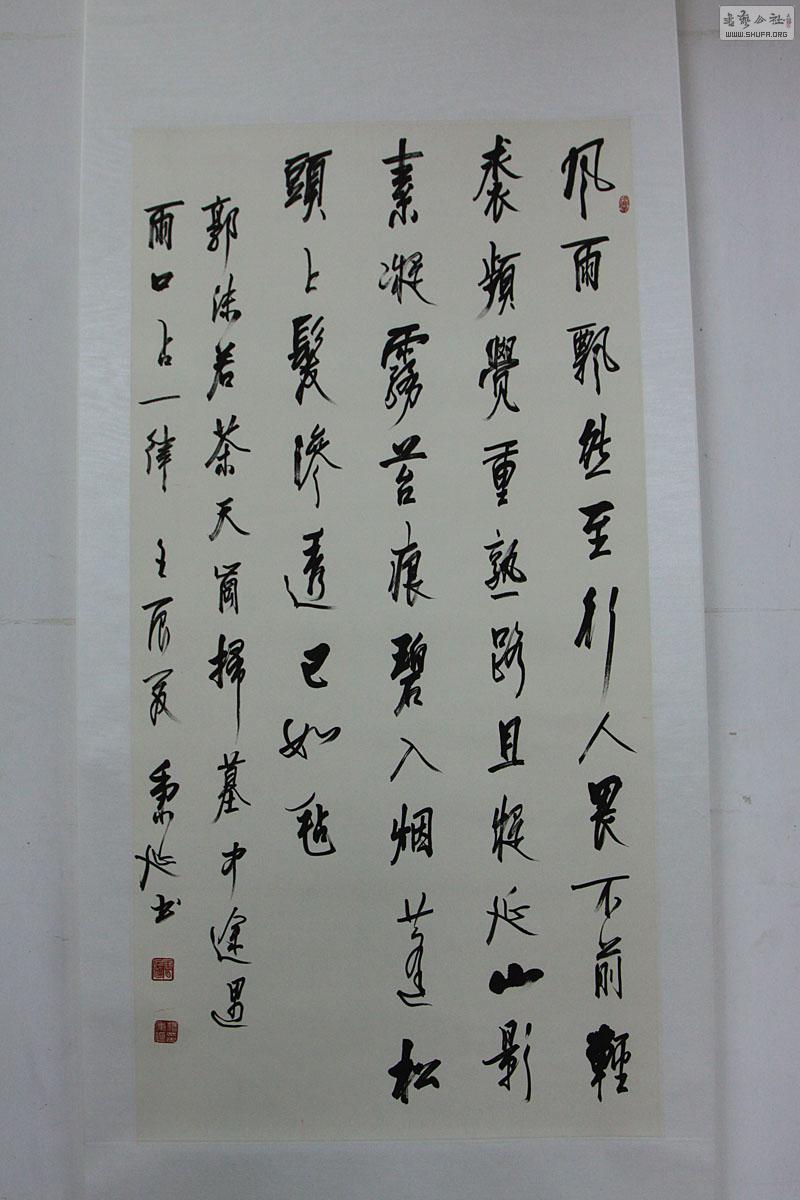 風雨飄然至行人畏不前輕
裘頻覺重熟路且延山影
素凝霧苔痕碧入烟蓬松
頭上髮滲透已如毡
郭沫若茶天崗掃墓中途遇
雨口占一律 壬辰夏 秉延书
书艺公社
WWW.SHUFA.ORG